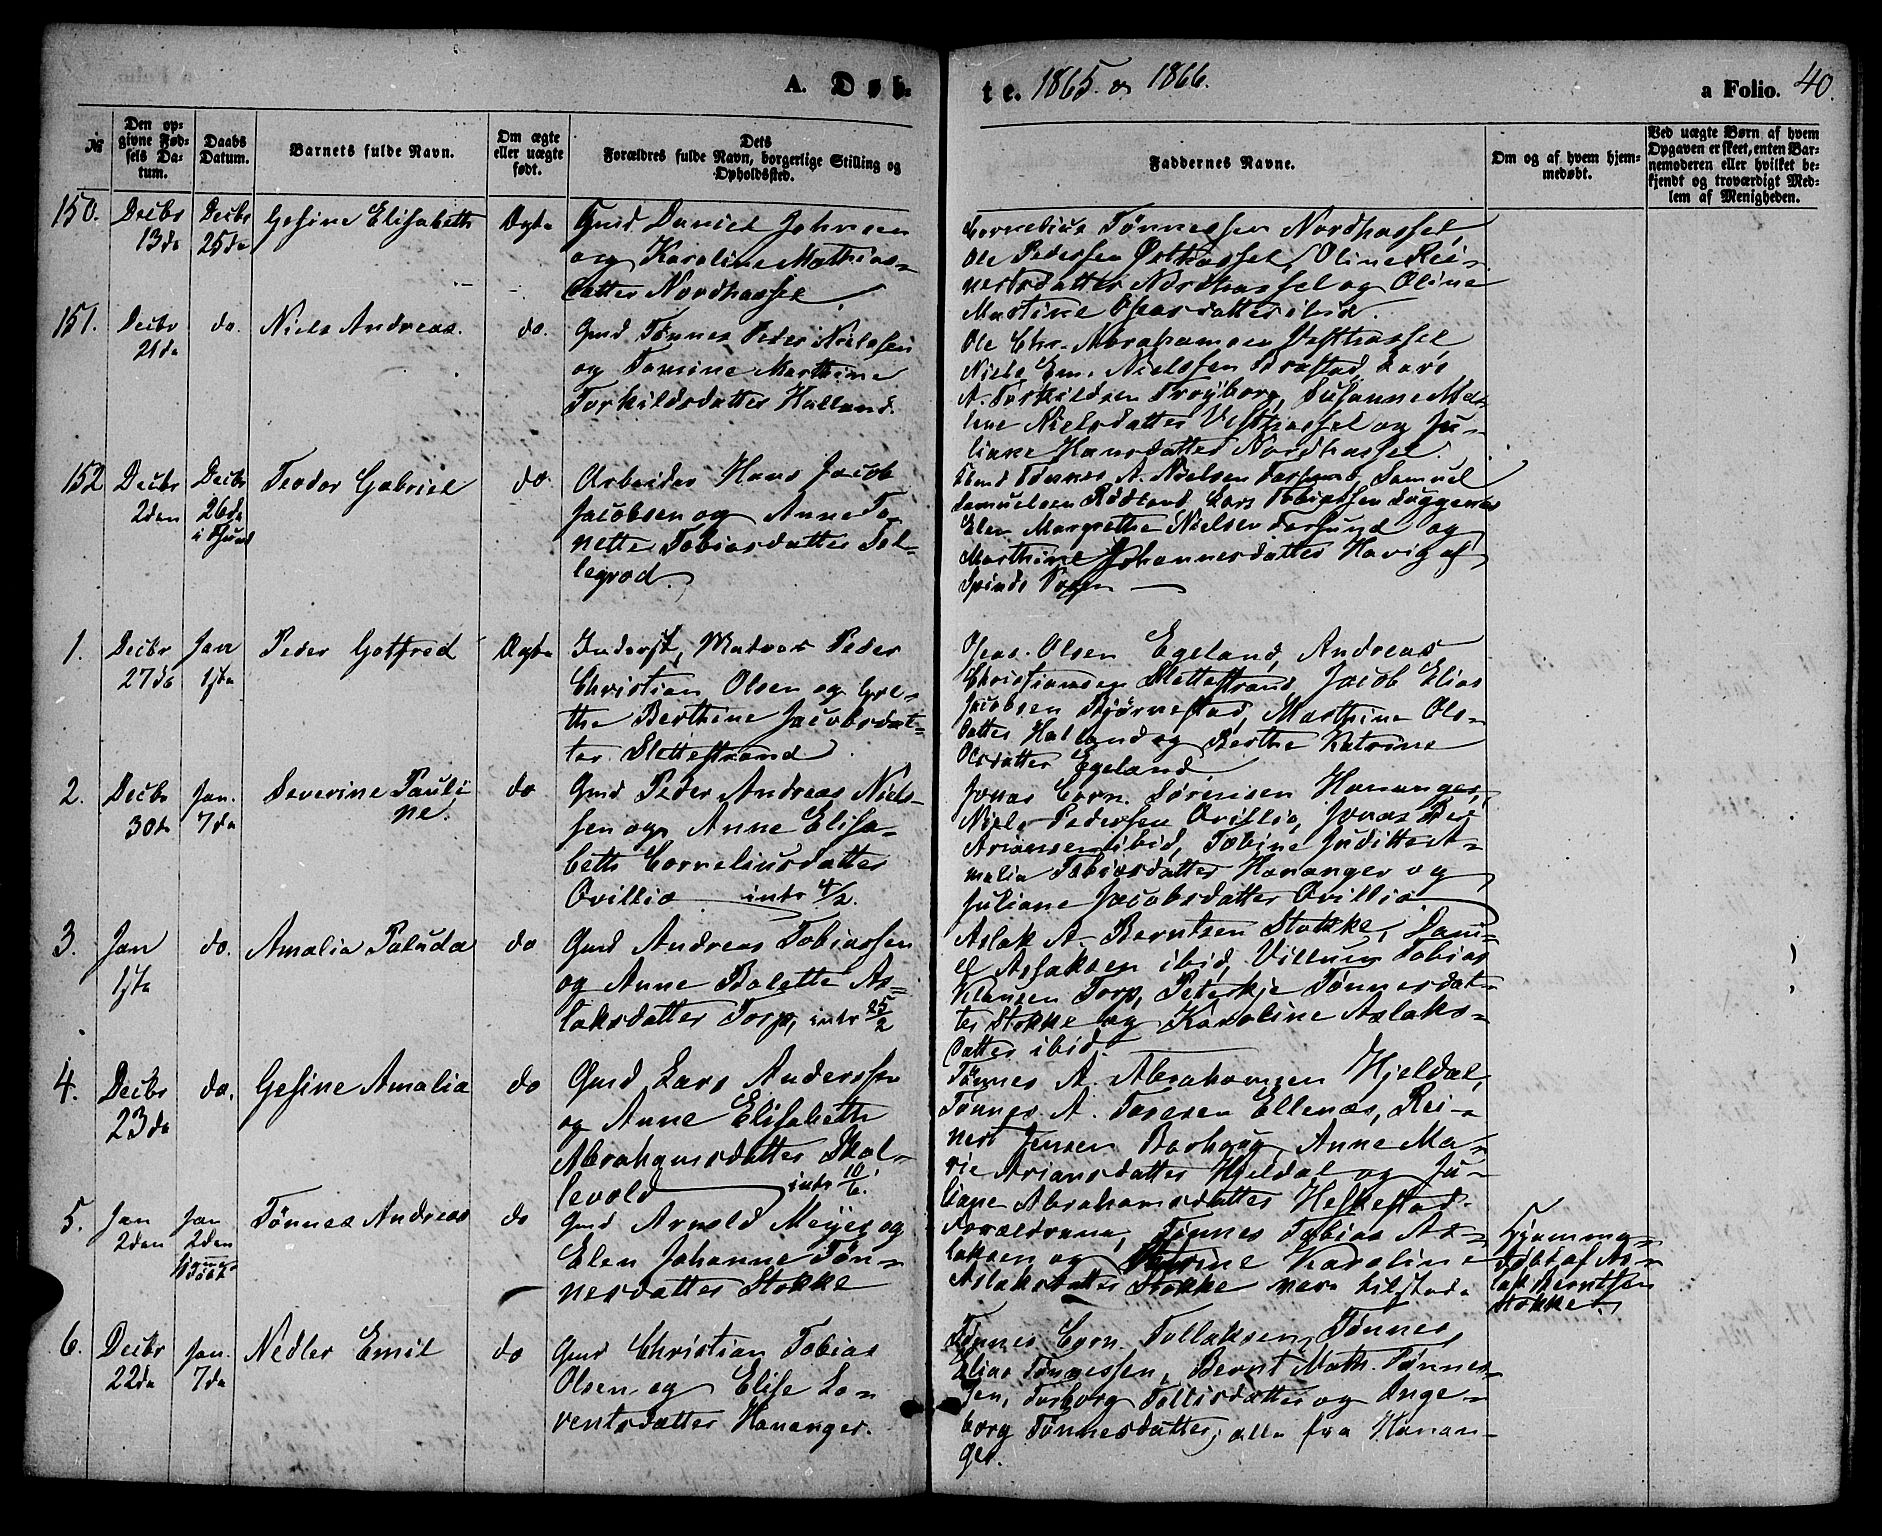 A. Døb-
te. 1865 og 1866.
a Folio. 40.
№
Den op-
givne Fød-
sels Da-
tum.
Daabs
Datum.
Barnets fulde Navn.
Om ægte
eller uægte
født.
Dets
Forældres fulde Navn, borgerlige Stilling og
Opholdssted.
Faddernes Navne.
Om og af hvem hjem-
medøbt.
Ved uægte Børn af hvem
Opgaven er skeet, enten Bar-
nemoderen eller hvilket be-
kjendt og troværdigt Med-
lem af Menigheden.
150.
Decbr
13de
Decbr
25de
Gesine Elisabeth
Ægte
Gmd Daniel Johnsen
og Karoline Mathias-
datter Nordhassel
Cornelius Tønnessen Nordhassel,
Ole Pedersen Østhassel, Oline Rei-
nertsdatter Nordhassel og Oline
Martine Oseasdatter ibid.
151.
Decbr
21de
do.
Niels Andreas.
do.
Gmd Tønnes Peder Nielssen
og Tomine Marthine
Torkildsdatter Halland.
Ole Chr. Abrahamsen Vesthassel,
Niels Em. Nielssen Brastad, Lars
A. Torkildsen Frøyborg, Susanne Ma-
line Nielsdatter Vesthassel og Ju-
liane Hansdatter Nordhassel.
152
Decbr
2den
Decbr
26de
i Fsund
Teodor Gabriel
do.
Arbeider Hans Jacob
Jacobsen og Anne To-
nette Tobiasdatter Jol-
legrød.
Tønnes A. Nielsen Farsund, Samuel
Samuelsen Rødland, Lars Tobiassen Duggenes
Elen Margrethe Nielsen Farsund og
Marthine Johannesdatter Havig af
Spinds Sogn
1.
Decbr
27de
Jan
1ste
Peder Gotfred
Ægte
Inderst, Matros Peder
Christian Olsen og Gre-
the Berthine Jacobsdat-
ter Slettestrand.
Oseas Olsen Egeland, Andreas
Christiansen Slettestrand, Jacob Elias
Jacobsen Bjørnestad, Marthine Ols-
datter Halland og Berthe Katrine
Olsdatter Egeland
2.
Decbr
30te
Jan.
7de
Severine Pauli-
ne.
do
Gmd Peder Andreas Niels-
sen og Anne Elisa-
beth Corneliusdatter
Ovillia intr 4/2.
Jonas Corn. Sørensen Hananger,
Niels Pedersen Ovillia, Jonas
Ariansen ibid, Tobine Juditte A-
malia Tobiasdatter Hananger og
Juliane Jacobsdatter Ovillia
3.
Jan
1ste
do.
Amalia Paluda
do
Gmd Andreas Tobiassen
og Anne Bolette As-
laksdatter Torp, intr 25/2
Aslak A. Berntsen Stokke, Dani-
el Aslaksen ibid, Villum Tobias
Klausen Torp, Peterkje Tønnesdat-
ter Stokke og Karoline Aslaks-
datter ibid.
4.
Decbr
23de
do.
Gesine Amalia
do
Gmd Lars Anderssen
og Anne Elisabeth
Abrahamsdatter Skol-
levold intr 10/6.
Tønnes A. Abrahamsen Hjeldal,
Tønnes A. Taresen Ellenæs, Rei-
nert Jensen Borhoug, Anne Ma-
rie Ariansdatter Hjeldal og Ju-
liane Abrahamsdatter Heskestad.
5.
Jan
2den
Jan
2den
Hjemme-
døbt
Tønnes Andreas
do
Gmd Arnold Meyer og
Elen Johanne Tøn-
nesdatter Stokke
Forældrene, Tønnes Tobias As-
laksen og Karoline
Aslaksdatter Stokke vare tilstede
Hjemme-
døbt af As-
lak Berntsen
Stokke.
6.
Decbr
22de
Jan.
7de
Nedler Emil
do
Gmd Christian Tobias
Olsen og Elise Lo-
rentsdatter Hananger.
Tønnes Corn. Tollaksen, Tønnes
Elias Tønnessen, Bernt Math. Tønnes-
sen, Torborg Tollisdatter og Inge-
borg Tønnesdatter, alle fra Hanan-
ger.